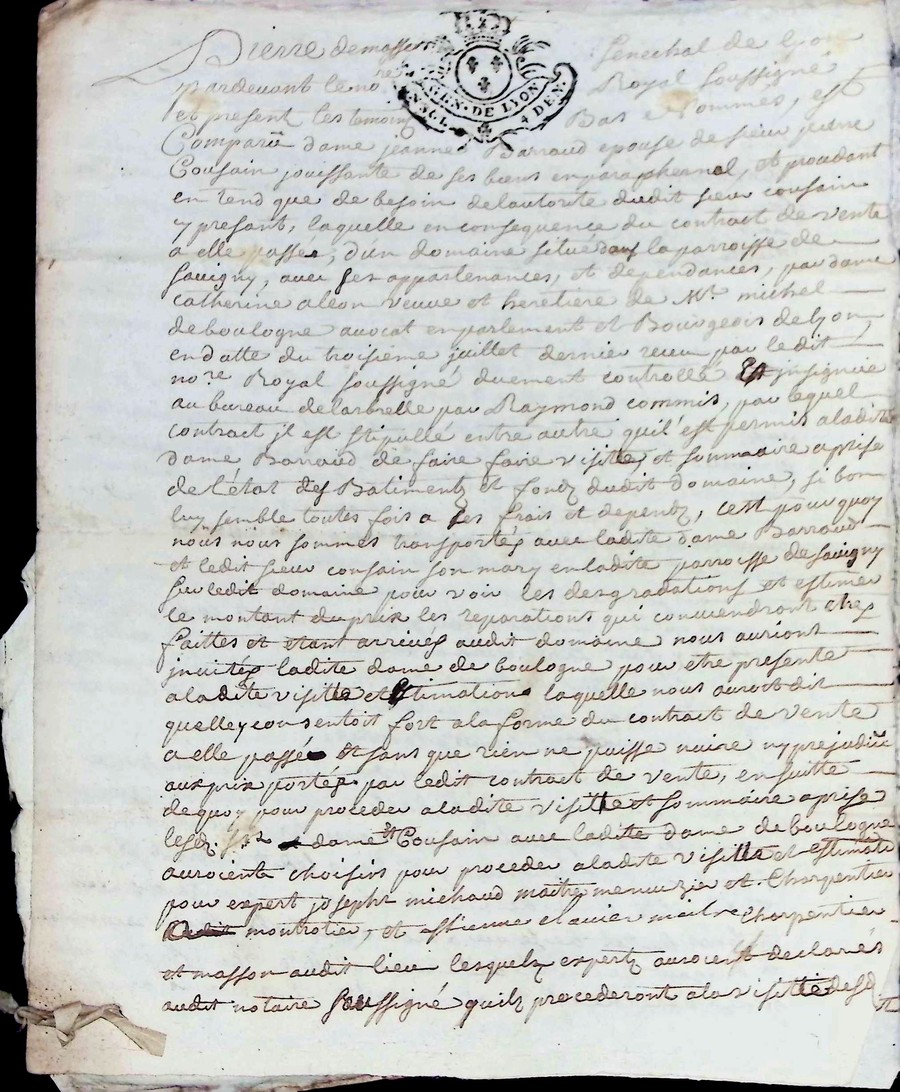 Pierre demasso Senechal de Lyon
pardevant le nore Royal soussigné
et present les temoins Bas Nommés, est
Comparüe dame jeanne Barraud epouse de sieur pierre
Cousain jouissante de ses biens en paraphernal, et procedant
en tend que de besoin delautorité dudit sieur cousain
y present, laquelle en consequence du contract de vente
a elle passée, d'un domaine situé dans la parroisse de
Savigny, avec ses appartenances, et dependances, par dame
Catherine aleon veuve et heretiere de Mr. michel
deboulogne avocat en parlement et Bourgeois de Lyon,
en datte du troisieme juillet dernier receu par ledit
nore. Royal soussigné duement controllé Et jnsignué
au bureau de larbrelle par Raymond commis, par lequel
contract jl est stipullé entre autre quil est permis a ladite
dame Barraud de faire faire visitte, et sommaire aprise
de l'état des Batimentz et fondz dudit domaine, si bon
luy semble toutes fois a ses frais et dependz, c'est pourquoy
nous nous sommes transportés avec ladite dame Barraud
et ledit sieur cousain son mary en ladite parroisse de Savigny
sur ledit domaine pour voir les desgradations et estimer
le montant du prix les reparations qui conviendront etres
faittes et etant arrivés audit domaine nous aurions
jnvités ladite dame de boulogne pour etre presente
a ladite visitte et Estimations laquelle nous auroit dit
quelle y consentoit fort a la forme du contract de vente
a elle passée et sans que rien ne puisse nuire ny prejudicie
aux prix portés par ledit contract de vente, en suitte
de quoy pour proceder a ladite visitte et sommaire aprise
lesdz. Sr et dame Cousain avec ladite dame de boulogne
auroient choisirs pour proceder a ladite visitte et estimatio
pour expert joseph michaud maitre menuzier et Charpentier
montrotier, et estienne clavier maitre Charpentier
et masson audit lieu lesquelz expertz auroient declarés
audit notaire soussigné quilz procederont a la visitte desd
GEN. DE LYON
4 DEN.